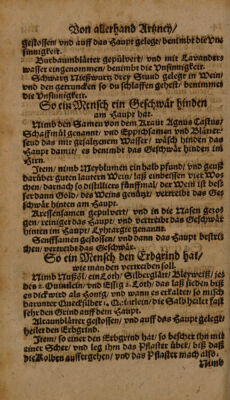 Von allerhand Artzney/
gestossen/ vnd auff das Haupt gelegt/ benimbt die Vn-
sinnigkeit.
Burbaumblätter gepülvert/ vnd mit Lavander-
wasser eingenommen/ benimbt die Vnsinnigkeit.
Schwarz Nießwurtz drey Stund gelegt in Wein/
vnd den getruncken so du schlaffen gehest/ benimmet
die Vnsinnigkeit.
So ein Mensch ein Geschwär hinden
am Haupt hat.
Nimb den Samen von dem Kraut Agnus Castus/
Schaffmül genannt/ vnd Eppichsamen vnd Blätter/
seud das mit gesaltzenem Wasser/ wäsch hinden das
Haupt damit/ es benimbt das Geschwär hinden im
Hirn.
Item/ nimb Meyblumen ein halb pfund/ vnd geuß
darüber guten lautern Wein/ laß einbeissen vier Wo-
chen/ darnach so distilliers fünffmal/ der Wein ist bes-
ser dann Gold/ des Weins genützt/ vertreibt das Ge-
schwär hinten am Haupt.
Kressensamen gepülvert/ vnd in die Nasen gezo-
gen/ reiniget das Haupt/ vnd vertreibt das Geschwär
hinden im Haupt/ Lythargie genannt.
Senffsamen gestossen/ vnd dann das Haupt bestri-
chen/ vertreibt das Geschwär.
So ein Mensch den Erbgrind hat/
wie man den vertreiben soll.
Nimb Nußöl/ ein Loth/ Silberglätt/ Bleyweiß/ je-
des 2. Quintlein/ vnd Essig 2. Loth/ das laß sieden biß
es dick wird als Honig/ vnd wann es erkaltet/ so misch
darunter Quecksilber 1. Quintlein/ die Salb heilet fast
sehr den Grind auff dem Haupt.
Alraunblätter gestossen/ vnd auff das Haupt gelegt/
heilet den Erbgrind.
Item/ so einer den Erbgrind hat/ so bescher ihn mit
einer Scher/ vnd leg ihm das Pflaster über/ biß daß
die Kolben aussergehen/ vnd das Pflaster mach also.
Nimb